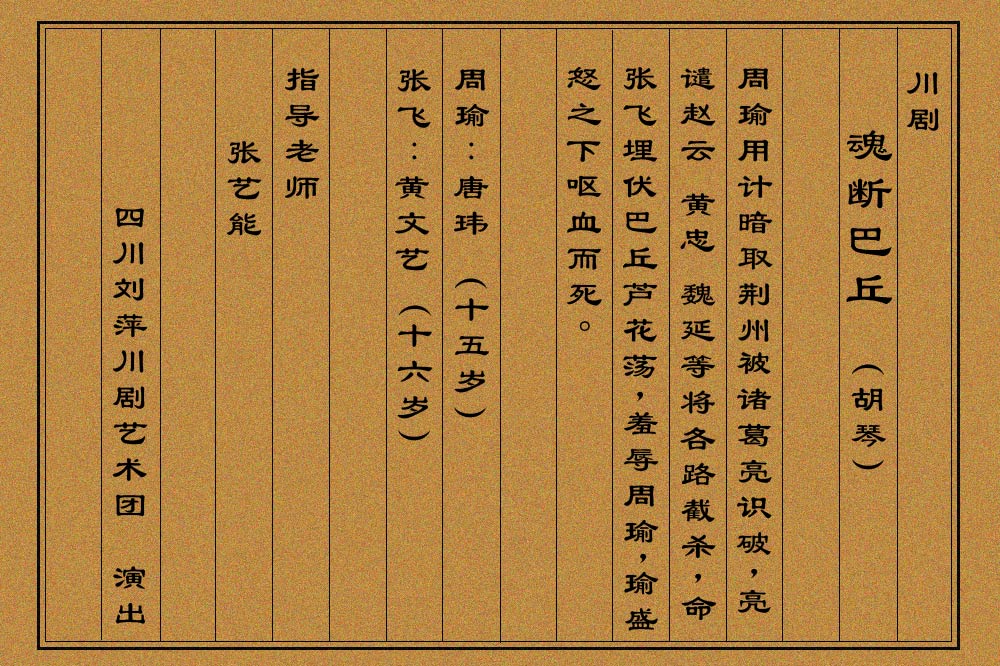 川剧
魂断巴丘 （胡琴）
周瑜用计暗取荆州被诸葛亮识破，亮
谴赵云 黄忠 魏延等将各路截杀，命
张飞埋伏巴丘芦花荡，羞辱周瑜，瑜盛
怒之下呕血而死。
周瑜：唐玮 （十五岁）
张飞：黄文艺 （十六岁）
指导老师
张艺能
四川刘萍川剧艺术团 演出